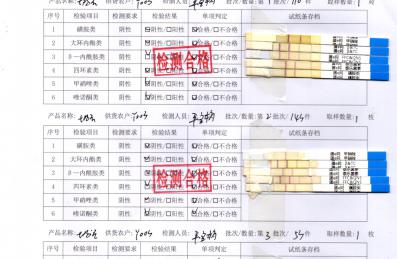 产品名称: 供货农户: Y005 检测人员: 批次/数量:第1批次/110件 取样数量:1枚
序号 检验项目 检测要求 检验结果 单项判定 试纸条存档
1 磺胺类 阴性 ☑阴性/☐阳性 ☑合格/☐不合格
2 大环内酯类 阴性 ☑阴性/☐阳性 ☑合格/☐不合格
3 β一内酰胺类 阴性 ☑阴性/☐阳性 ☑合格/☐不合格
4 四环素类 阴性 ☑阴性/☐阳性 ☑合格/☐不合格
5 甲硝唑类 阴性 ☑阴性/☐阳性 ☑合格/☐不合格
6 喹诺酮类 阴性 ☑阴性/☐阳性 ☑合格/☐不合格
检测合格
产品名称: 供货农户: Y005 检测人员: 批次/数量:第2批次/145件 取样数量:1枚
序号 检验项目 检测要求 检验结果 单项判定 试纸条存档
1 磺胺类 阴性 ☑阴性/☐阳性 ☑合格/☐不合格
2 大环内酯类 阴性 ☑阴性/☐阳性 ☑合格/☐不合格
3 β一内酰胺类 阴性 ☑阴性/☐阳性 ☑合格/☐不合格
4 四环素类 阴性 ☑阴性/☐阳性 ☑合格/☐不合格
5 甲硝唑类 阴性 ☑阴性/☐阳性 ☑合格/☐不合格
6 喹诺酮类 阴性 ☑阴性/☐阳性 ☑合格/☐不合格
检测合格
产品名称: 供货农户: Y005 检测人员: 批次/数量:第3批次/55件 取样数量:1枚
序号 检验项目 检测要求 检验结果 单项判定 试纸条存档